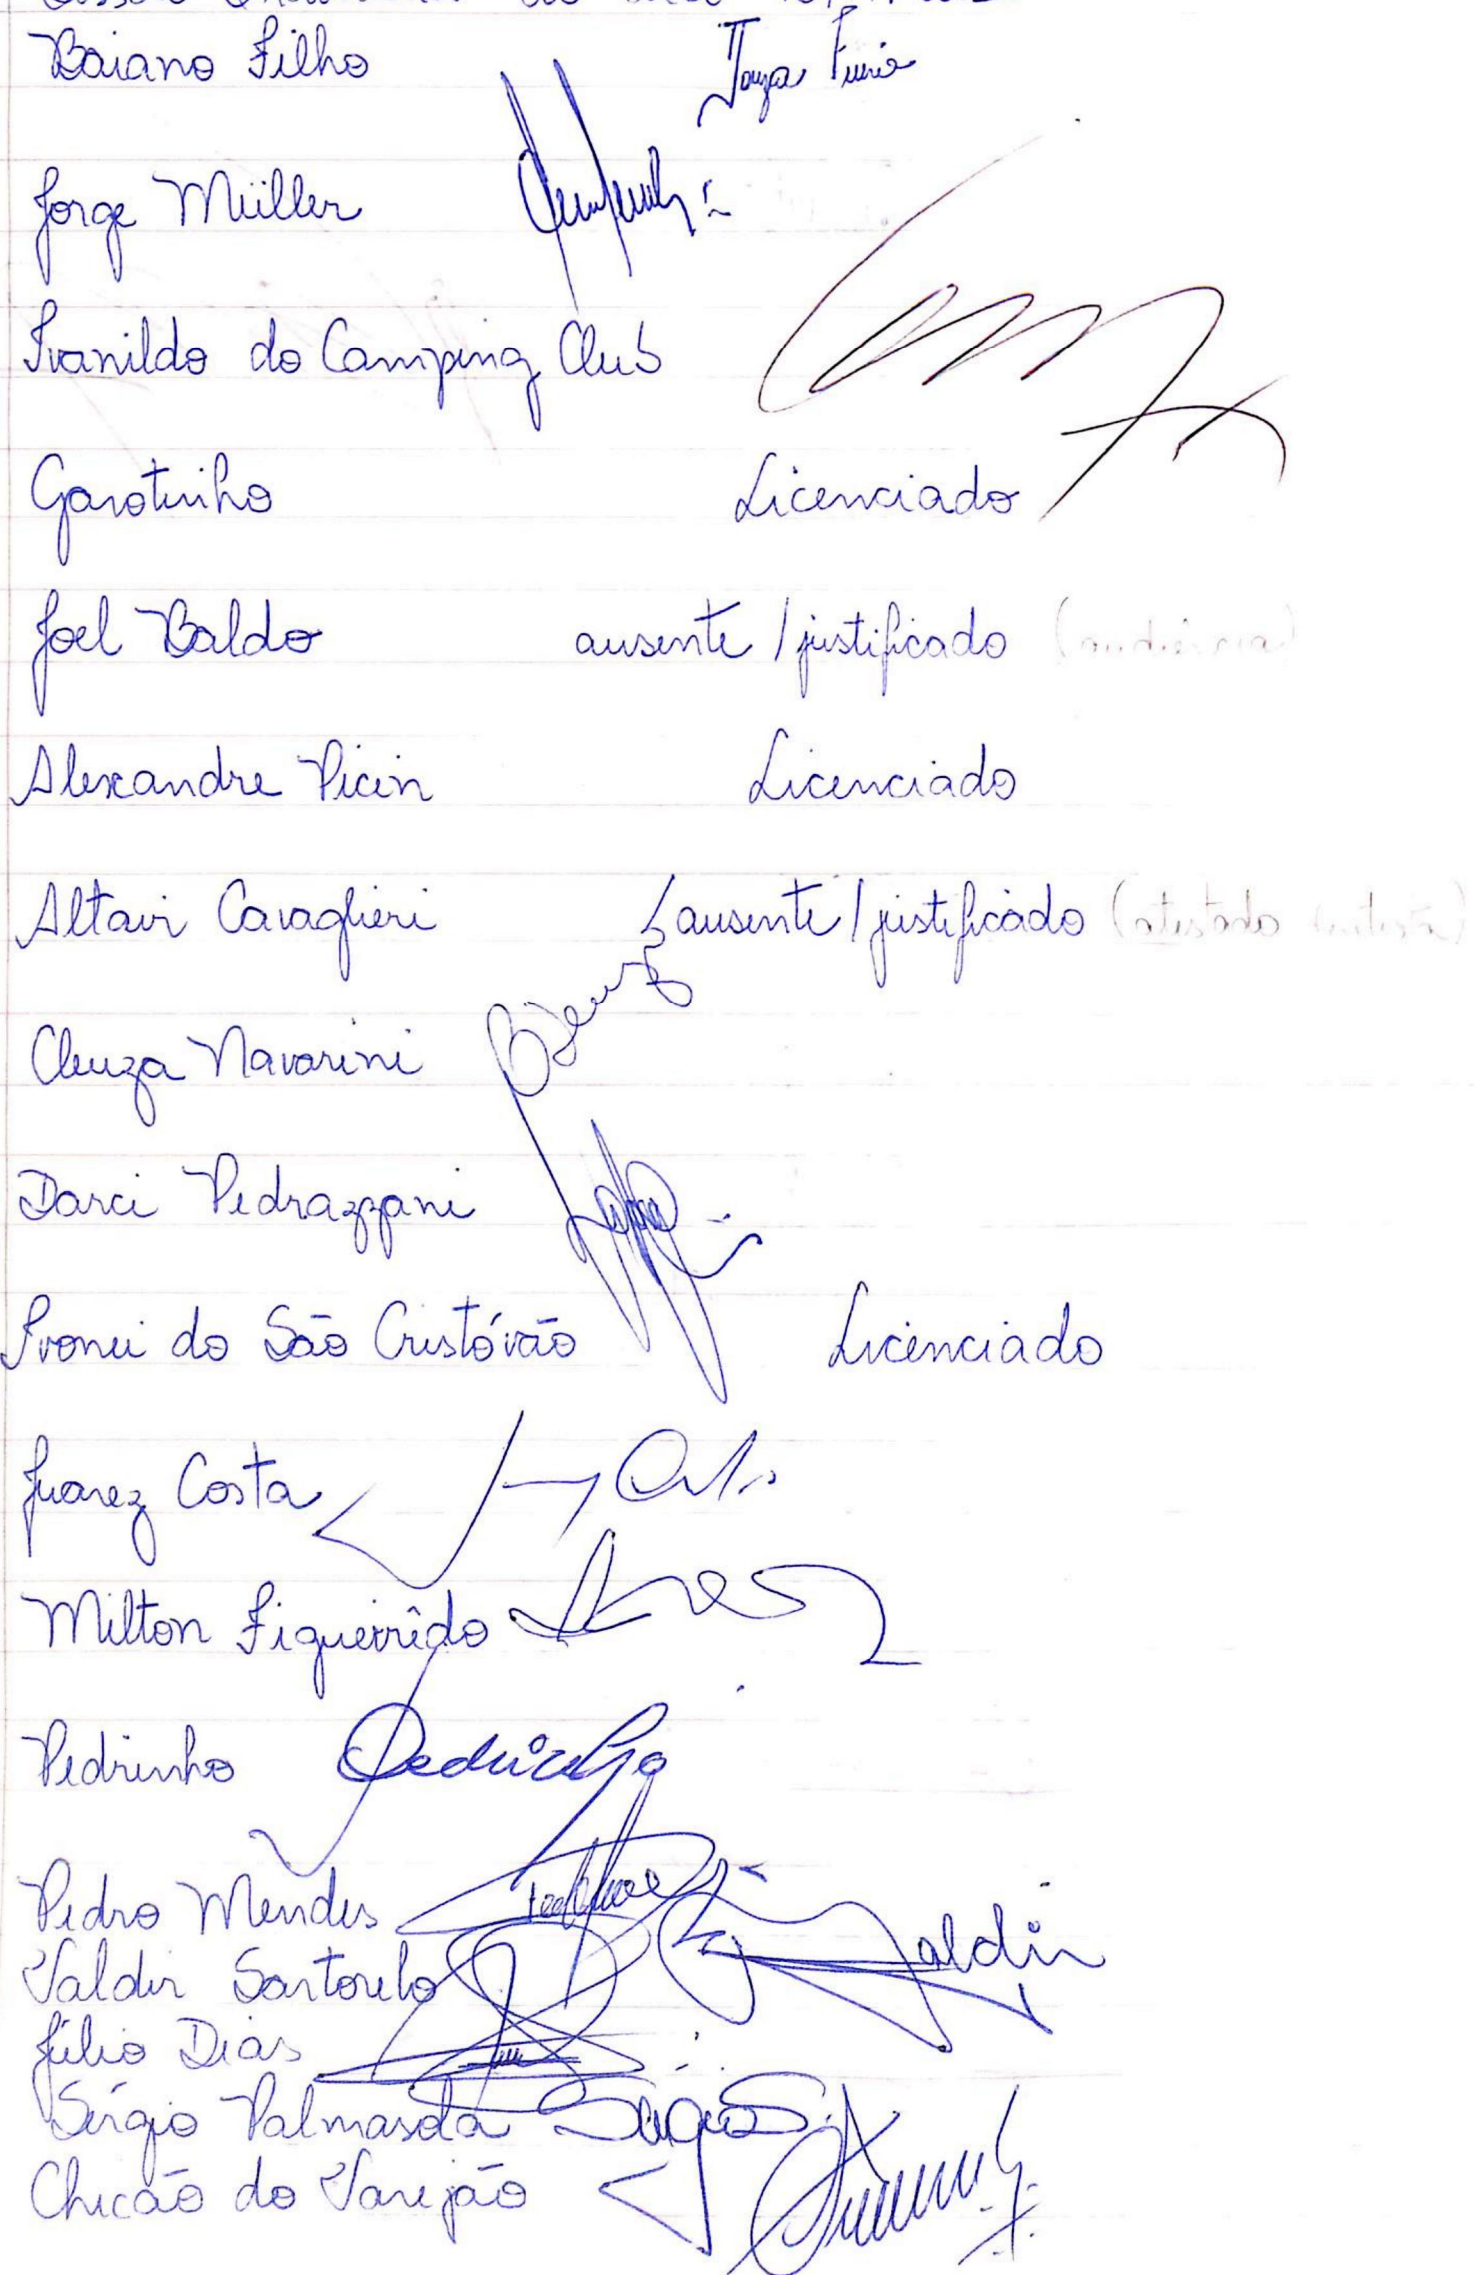 Baiano Filho
Jorge Müller
Ivanildo do Camping Club
Garotinho Licenciado
Joel Baldo ausente / justificado
Alexandre Picin Licenciado
Altair Cavaglieri ausente / justificado
Cleuza Navarini
Darci Pedrazzani
Ivonei do São Cristóvão Licenciado
Juarez Costa
Milton Figueirêdo
Pedrinho Pedrinho
Pedro Mendes
Valdir Sartorelo Valdir
Júlio Dias
Sérgio Palmasola Sérgio
Chicão do Varejão